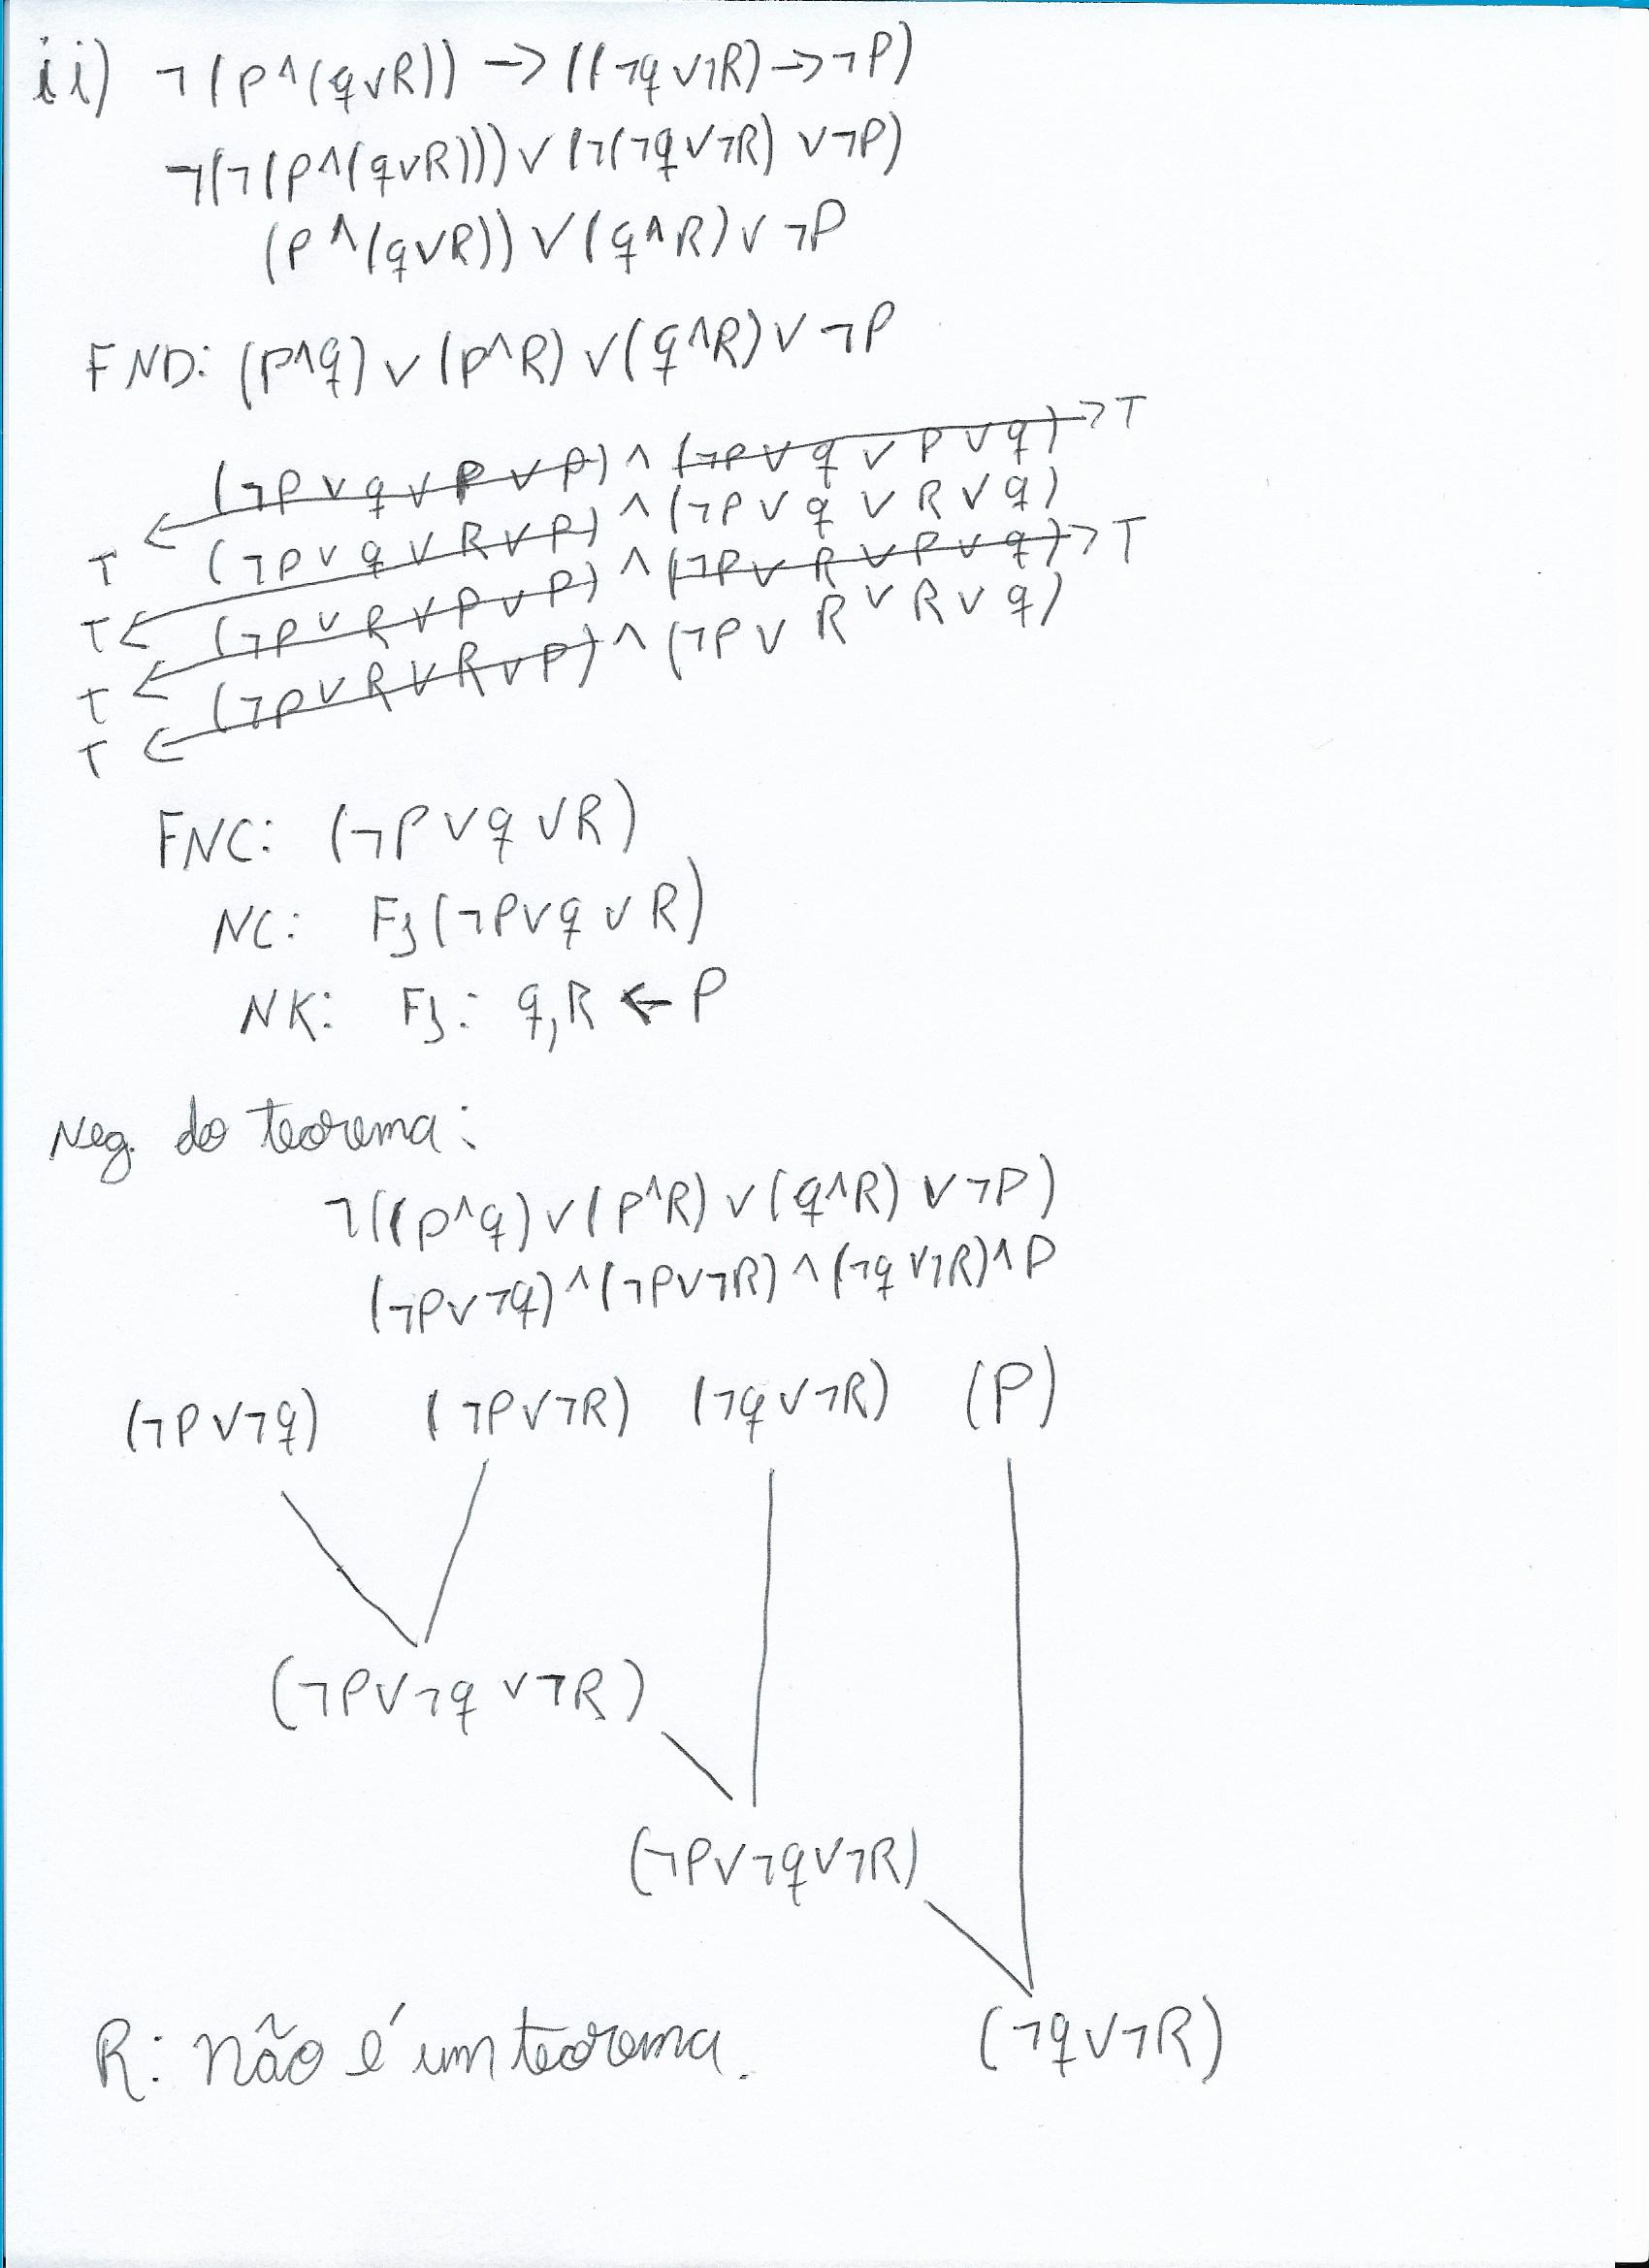 ii) ¬(P∧(q∨R)) → ((¬q∨¬R)→¬P)
¬(¬(P∧(q∨R)))∨(¬(¬q∨¬R)∨¬P)
(P∧(q∨R))∨(q∧R)∨¬P
FND: (P∧q)∨(P∧R)∨(q∧R)∨¬P
(¬P∨q∨P∨P)∧(¬P∨q∨P∨q)→T
T ← (¬P∨q∨R∨P)∧(¬P∨q∨R∨q)
T ← (¬P∨R∨P∨P)∧(¬P∨R∨P∨q)→T
T ← (¬P∨R∨R∨P)∧(¬P∨R∨R∨q)
T ←
FNC: (¬P∨q∨R)
NC: F3(¬P∨q∨R)
NK: F3: q,R ← P
Neg. do teorema:
¬((P∧q)∨(P∧R)∨(q∧R)∨¬P)
(¬P∨¬q)∧(¬P∨¬R)∧(¬q∨¬R)∧P
(¬P∨¬q) (¬P∨¬R) (¬q∨¬R) (P)
(¬P∨¬q∨¬R)
(¬P∨¬q∨¬R)
R: Não é um teorema. (¬q∨¬R)